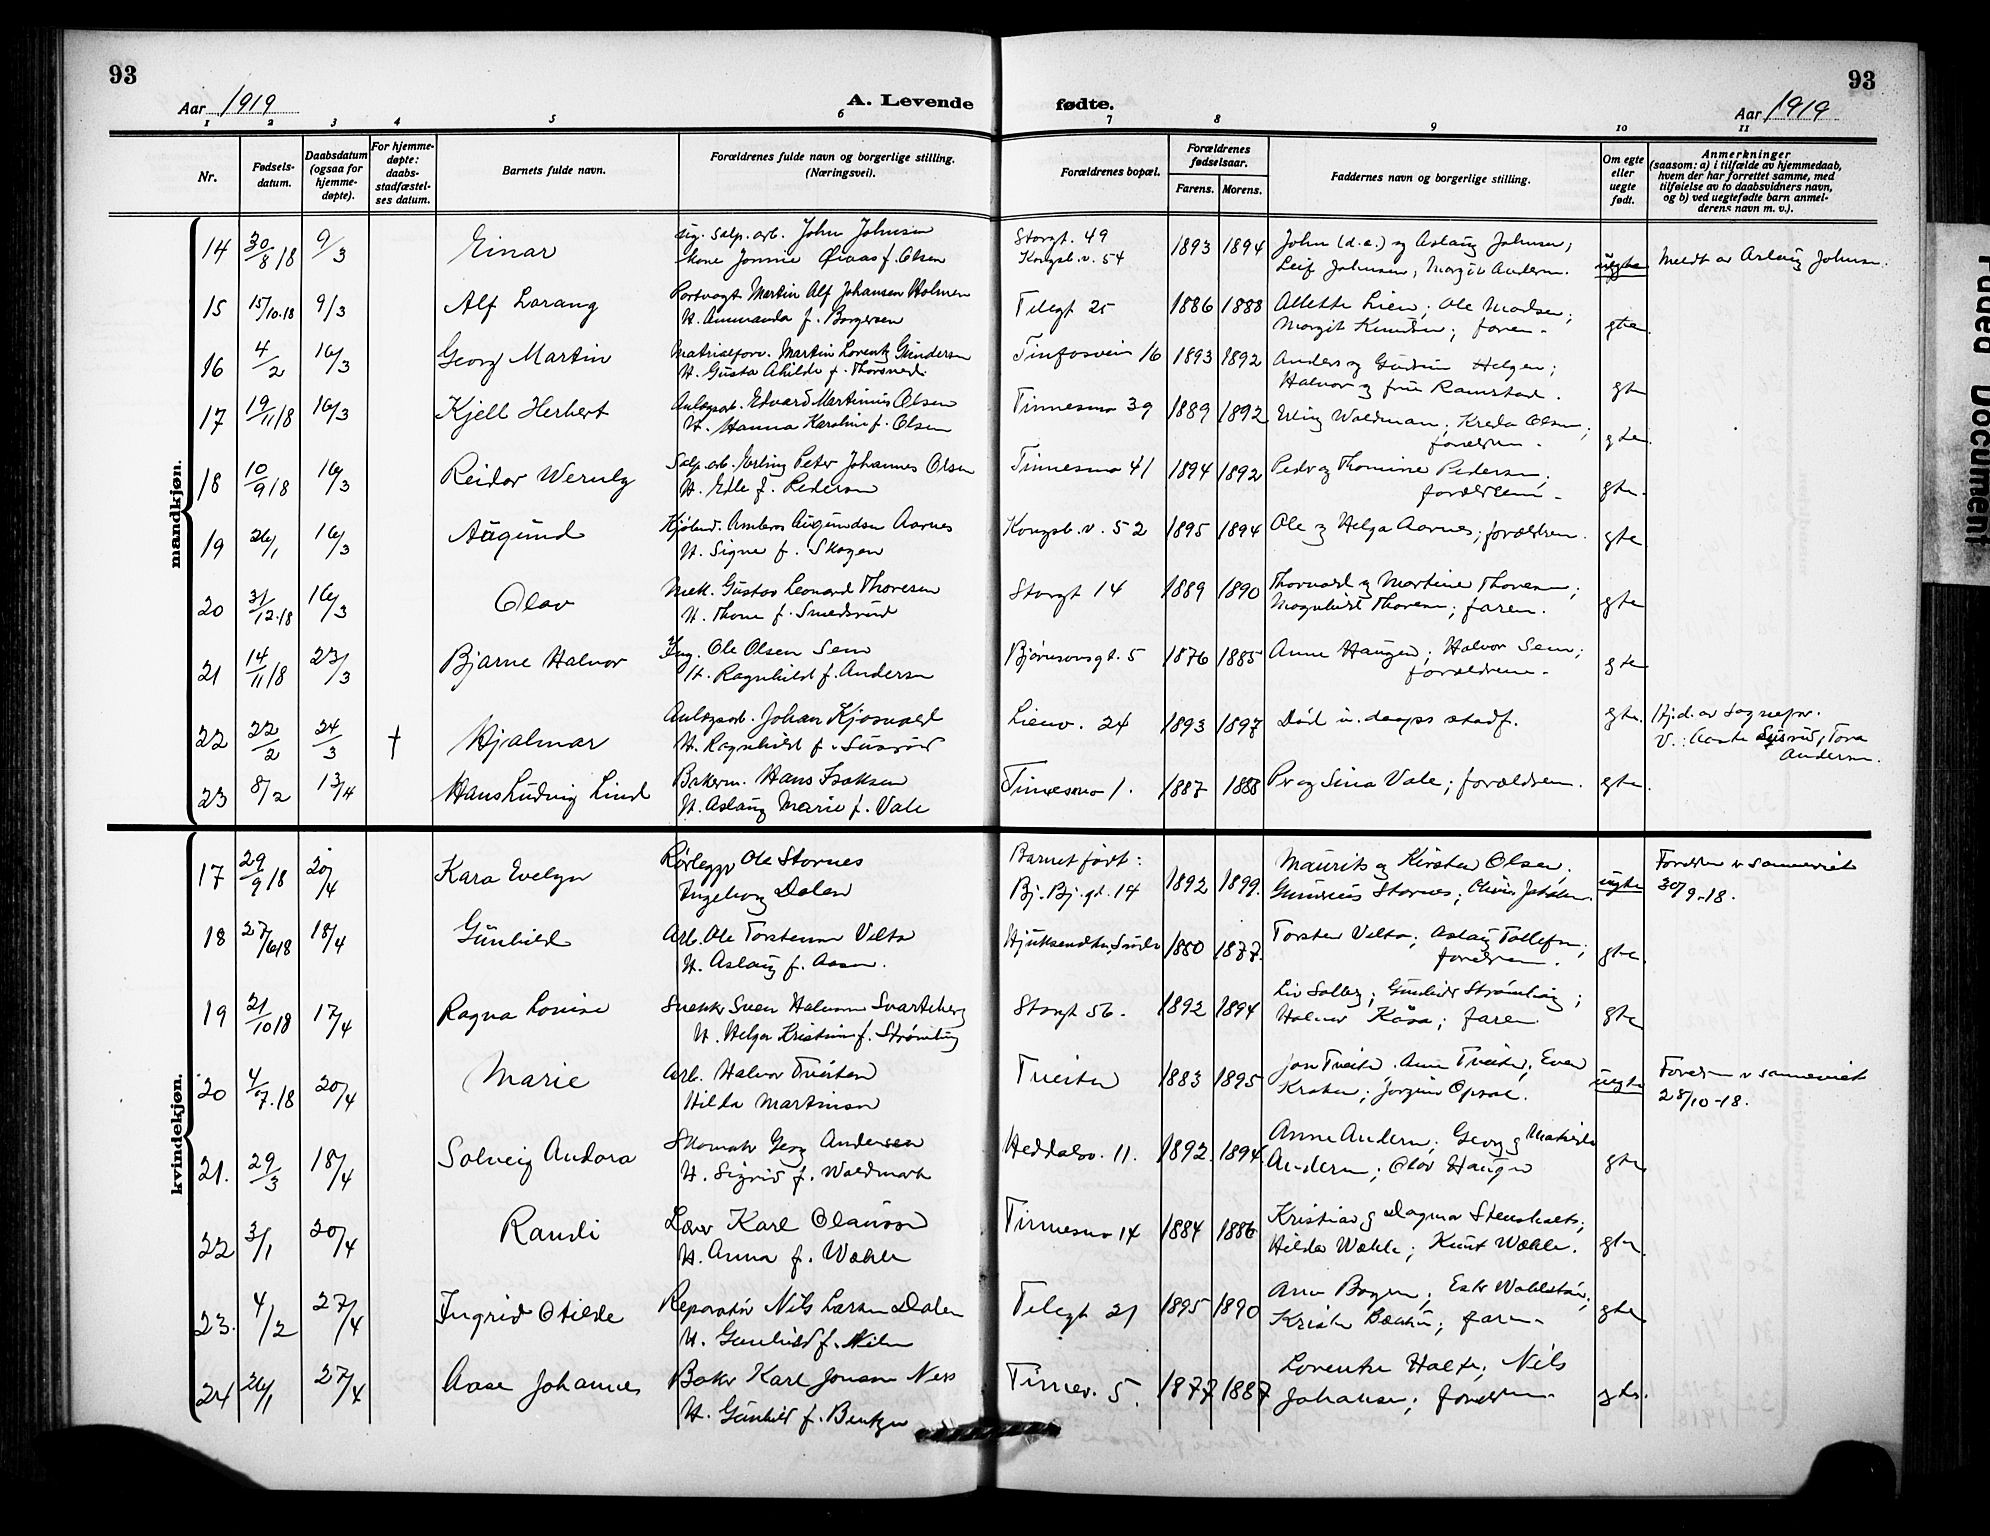 93
93
Aar 1919
A. Levende
fødte.
Aar 1919
1 2 3 4 5 6 7 8 9 10 11
Nr.
Fødsels-
datum.
Daabsdatum
(ogsaa for
hjemme-
døpte).
For hjemme-
døpte:
daabs-
stadfæstel-
ses datum.
Barnets fulde navn.
Forældrenes fulde navn og borgerlige stilling.
(Næringsvei).
Forældrenes bopæl.
Forældrenes
fødselsaar.
Farens. Morens.
Faddernes navn og borgerlige stilling.
Om egte
eller
uegte
født.
Anmerkninger
(saasom: a) i tilfælde av hjemmedaab,
hvem der har forrettet samme, med
tilføielse av to daabsvidners navn,
og b) ved uegtefødte barn anmel-
derens navn m. v.).
mandkjøn.
14 30/8 18 9/3 Einar
John Johnsen
f. Olsen
Storgt. 49
Kongsb.v. 54
1893 1894
John (d.e.) og Aslaug Johnsen;
Leif Johnsen; Margit Andersn.
uegte
Meldt av Aslaug Johnsen.
15 15/10.18 9/3 Alf Lorang
Martin Alf Johansen Holmen
H. Ammanda f. Borgersen
Telegt 25
1886 1888
Allette Lien; Ole Madsen;
Margit Knudsen; faren.
gte.
16 4/2 16/3 Georg Martin
Martin Lorentz Gundersen
H. Gusta Alhilde f. Thorsnes.
Tinfosvein 16
1893 1892
Anders og Gudrun Helgen;
Halvor og frue Ramstad.
gte
17 19/11 18 16/3 Kjell Herbert
Anlægsarb. Edvard Martinius Olsen
H. Hanna Karoline f. Olsen
Tinnesmo 39
1889 1892
Erling Waldman; Kreda Olsen;
forældren.
gte.
18 10/9 18 16/3 Reidar Wernly
Salp.arb. Erling Peter Johannes Olsen
H. Edle f. Pedersen
Tinnesmo 41
1894 1892
Peder og Thomine Pedersen;
forældrene.
gte.
19 26/1 16/3 Augund
Kjøbmd. Ambros Augundsen Aarnes
H. Signe f. Skogen
Kongsb.v. 52
1895 1894
Ole og Helga Aarnes; forældren.
gte
20 31/12.18 16/3 Olav
Mek. Gustav Leonard Thoresen
H. Thone f. Smedsrud
Storgt 14
1889 1890
Thorvald og Martine Thoresen;
Magnhild Thoresen; faren.
gte
21 14/11 18 23/3 Bjarne Halvor
Ing. Ole Olsen Sem
H. Ragnhild f. Andersen
Bjørnsonsgt. 5
1876 1885
Anne Haugen; Halvor Sem;
forældrene.
gte
22 22/2 24/3 † Hjalmar
Anlægsarb. Johan Kjosvold
H. Ragnhild f. Susrud
Lienv. 24
1893 1897
Død u. daaps stadf.
gte.
Hj.d. av Sognepr.
V.: Aaste Susrud, Tora
Andersen.
23 8/2 13/4 Hans Ludvig Lind
Bakerm. Hans Isaksen
H. Aslaug Marie f. Vale
Tinnesmo 1.
1887 1888
Per og Sina Vale; forældren.
gte.
kvindekjøn.
17 29/9 18 20/4 Kara Evelyn
Rørlegger Ole Stornes
Ingeborg Dalen
Barnet født:
Bj. Bj. gt. 14
1892 1899.
Maurits og Kirsten Olsen;
Gunerius Stornes;
uegte
Foreldren v sammenviet
30/9.-18.
18 27/6 18 18/4 Gunhild
Arb. Ole Torstensen Velta
H. Aslaug f. Aasen.
1880 1877.
Torsten Velta; Aslaug Tollefsen;
foreldren.
gte.
19 21/10 18 17/4 Ragna Louise
Snekker Sven Halvorsen Svartebe​rg
H. Helga Kristine f. Strømhaug
Storgt 56.
1892 1894
Liv Solberg; Gunhild Strømhaug;
Halvor Kåsa; faren
gte
20 4/7.18 20/4 Marie
Arb. Halvor Tveiten
Hilda Martinsen
Tveiten
1883 1895
Jon Tveiten. Anne Tveiten; Even
Kroken; Jørgine Opsal.
uegte
Foreldren v sammenviet
28/10-18.
21. 29/3 18/4 Solveig Andora
Skomaker Georg Andersen
H. Sigrid f. Waldmark
Heddalsv. 11.
1892. 1894.
Anne Andersen; Georg og Mathilde
Andersen; Olav Haugen
gte
22 3/1 20/4 Randi
Lærer Karl Olausson
H. Anna f. Wæhle
Tinnesmo 14
1884 1886
Kristian og Dagmar Stensholt;
Hilda Wæhle; Knut Wæhle.
gte.
23. 4/2 27/4 Ingrid Otilde
Reparatør Nils Larsen Dalen
H. Gunhild f. Nilsen
Telegt 21
1895 1890
gte
24 26/1 27/4 Aase Johannes
Baker Karl Jonsen Nes
H. Gunhild f. Bentzen
Tinnev. 5.
1877 1887
Lorentze Halte; Nils
Johansen; foreldren.
gte.
Faded Document